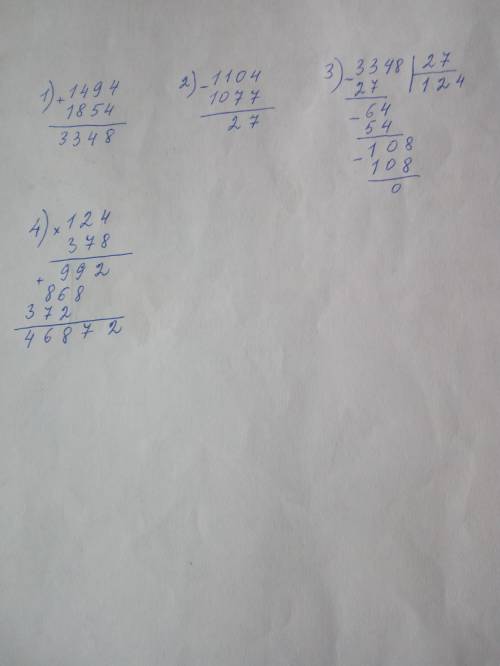 1) + 1494
1854
3348
2) - 1104
1077
27
3) - 3348 | 27
27 124
- 64
54
- 108
108
0
4) × 124
378
+ 992
868
372
46872